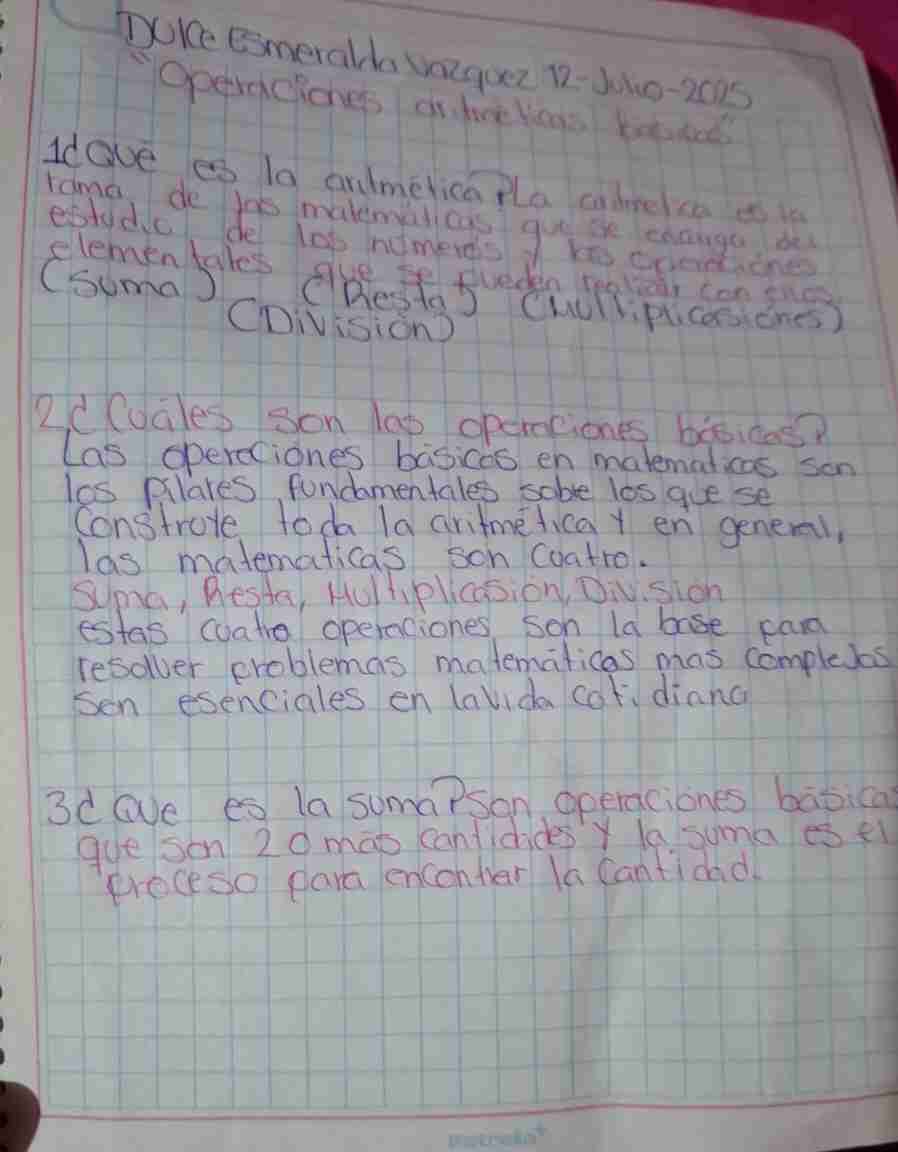 Dulce esmeralda vazquez 12-Julio-2025
"Operaciones aritmeticas basicas"
1¿Que es la aritmética?La aritmetica es la
rama de las matematicas que se encarga del
estudio de los numeros y las operaciones
elementales que se pueden realizar con ellos
(Suma) (Resta) (Multiplicasiones)
(División)
2¿Cuáles son las operaciones básicas?
Las operaciones básicas en matematicas son
los pilares fundamentales sobre los que se
Construye toda la aritmética y en general,
las matematicas son cuatro.
Suma, Resta, Multiplicasión, División
estas cuatro operaciones son la base para
resolver problemas matemáticas mas complejos
son esenciales en lavida cotidiana
3¿Que es la suma?Son operaciones básicas
que son 2 o más cantidides y la suma es el
proceso para encontrar la cantidad.